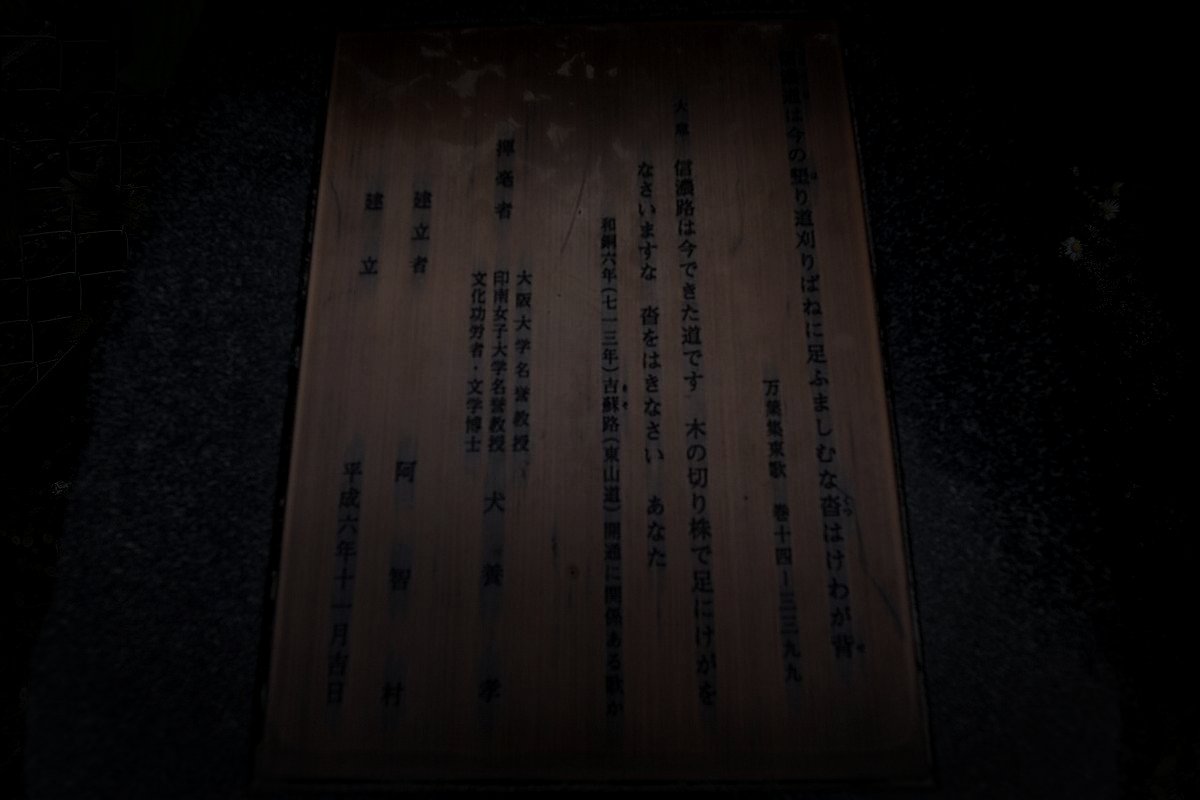 信濃路は今の墾り道刈りばねに足ふましむな沓はけわが背
万葉集東歌 巻十四ー三三九九
大意 信濃路は今できた道です 木の切り株で足にけがを
なさいますな 沓をはきなさい あなた
和銅六年(七一三年)吉蘇路(東山道)開通に関係ある歌か
揮毫者 大阪大学名誉教授
印南女子大学名誉教授 犬養孝
文化功労者・文学博士
建立者 阿智村
建立 平成六年十一月吉日